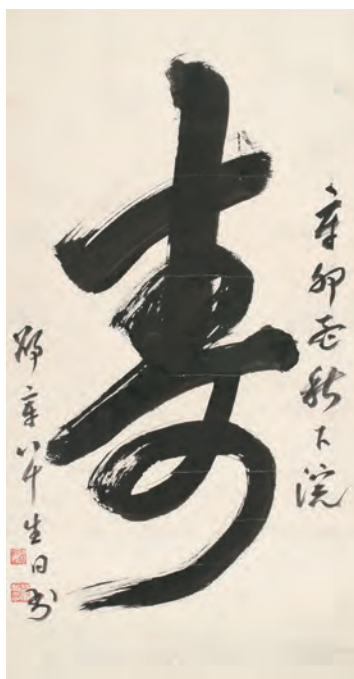 辛卯孟秋下浣
寿
辛八十生日书